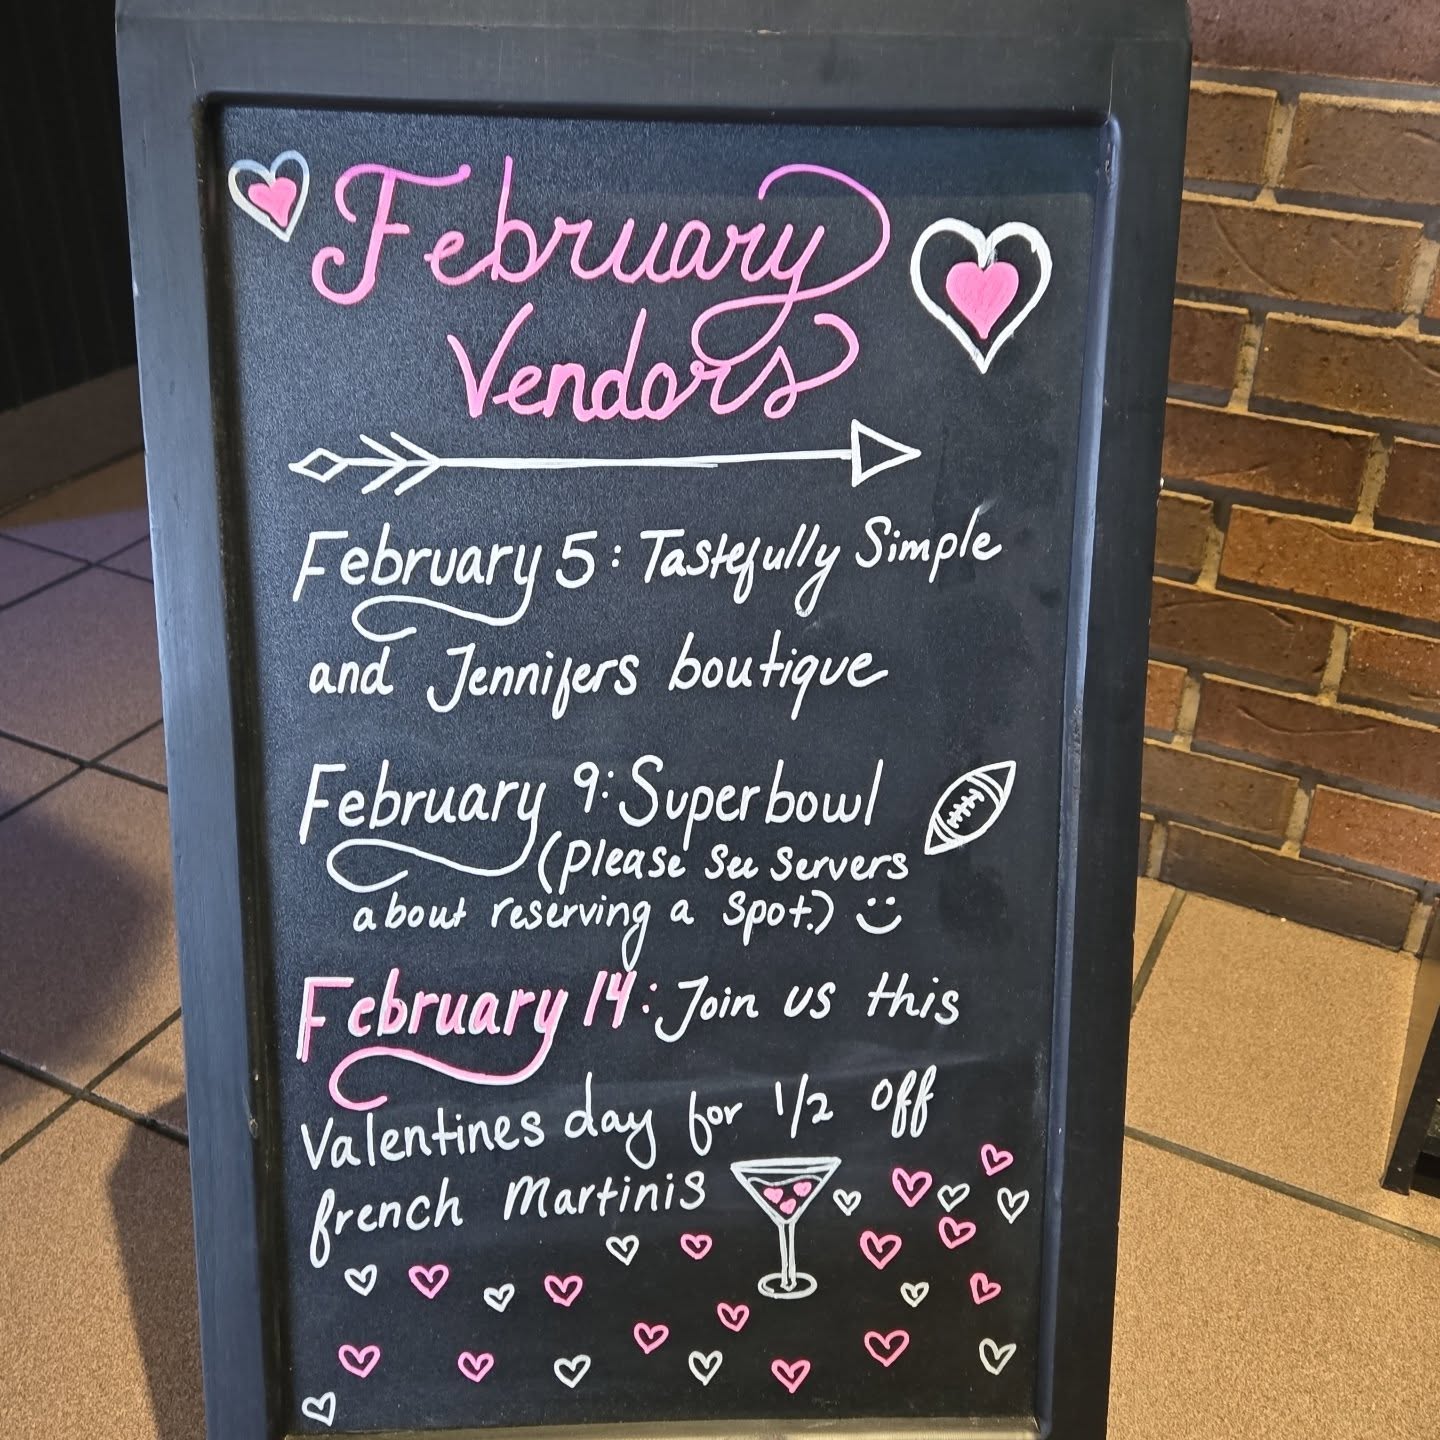 February
Vendors
February 5: Tastefully Simple
and Jennifers boutique
February 9: Superbowl
(Please see servers
about reserving a spot.) :)
February 14: Join us this
Valentines day for 1/2 off
french Martinis